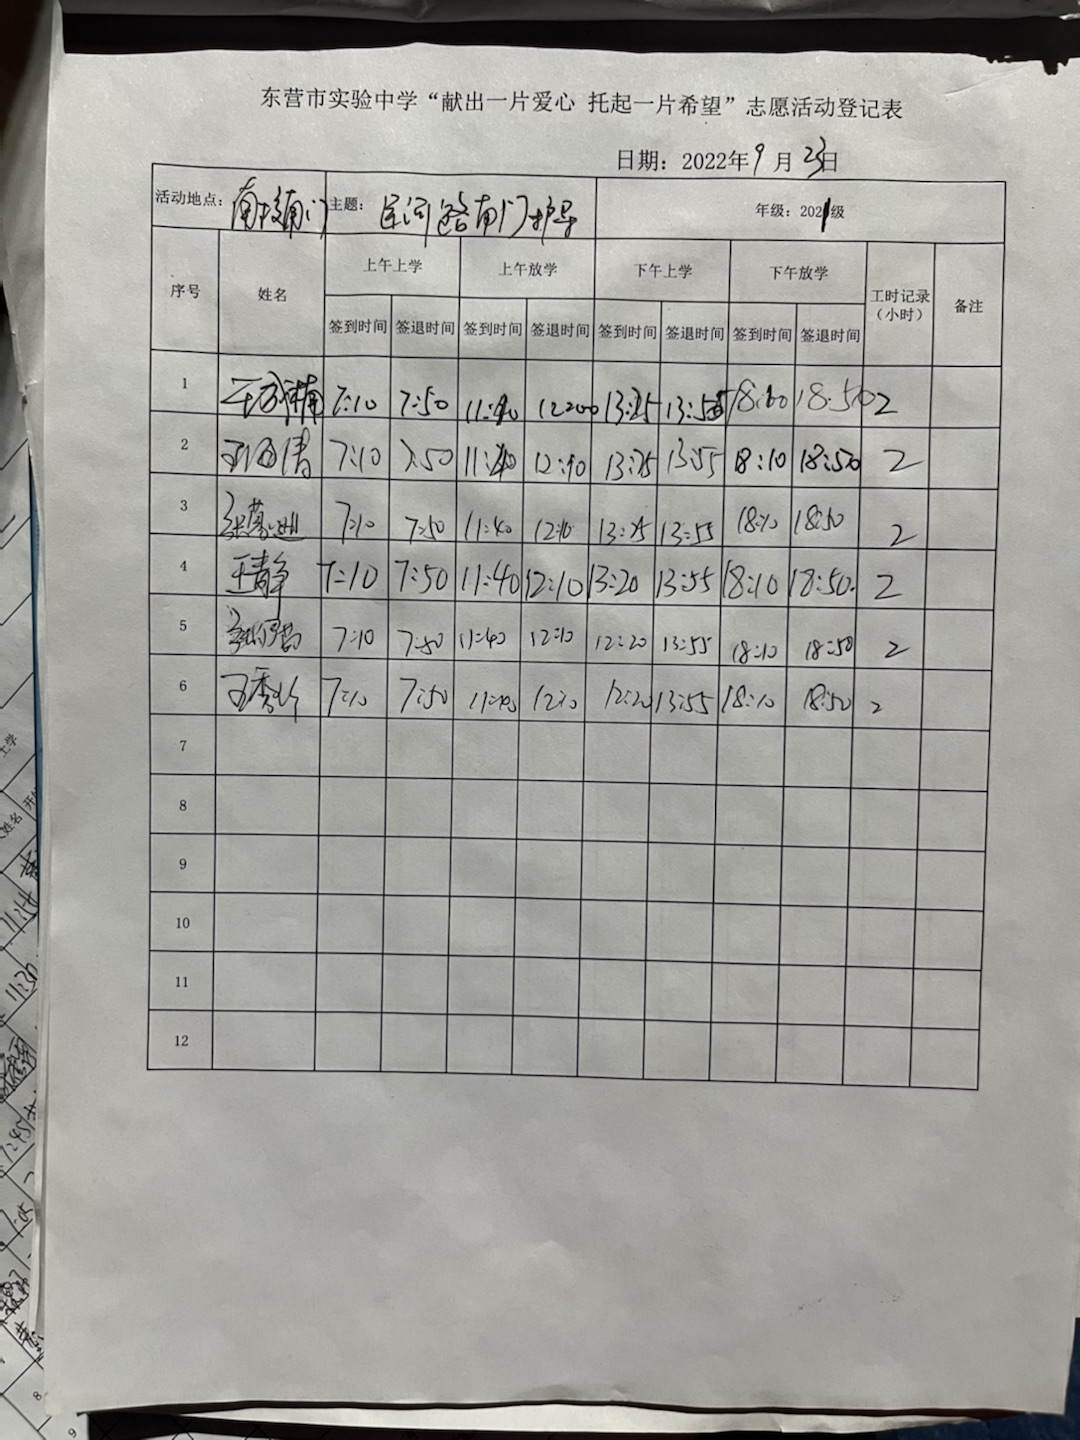 东营市实验中学“献出一片爱心 托起一片希望”志愿活动登记表
日期：2022年9月23日
活动地点：南校南门 主题：路南门护导 年级：2021级
序号 姓名 上午上学 上午放学 下午上学 下午放学 工时记录（小时） 备注
签到时间 签退时间 签到时间 签退时间 签到时间 签退时间 签到时间 签退时间
1 7:10 7:50 11:40 13:25 13:55 18:50 2
2 7:10 7:50 11:40 12:10 13:25 13:55 18:10 18:50 2
3 7:10 7:50 11:40 12:10 13:25 13:55 18:10 18:50 2
4 王静 7:10 7:50 11:40 12:10 13:20 13:55 18:10 18:50. 2
5 7:10 7:50 11:40 12:10 12:20 13:55 18:10 18:50 2
6 7:10 7:50 11:40 12:10 12:20 13:55 18:10 18:50 2
7
8
9
10
11
12